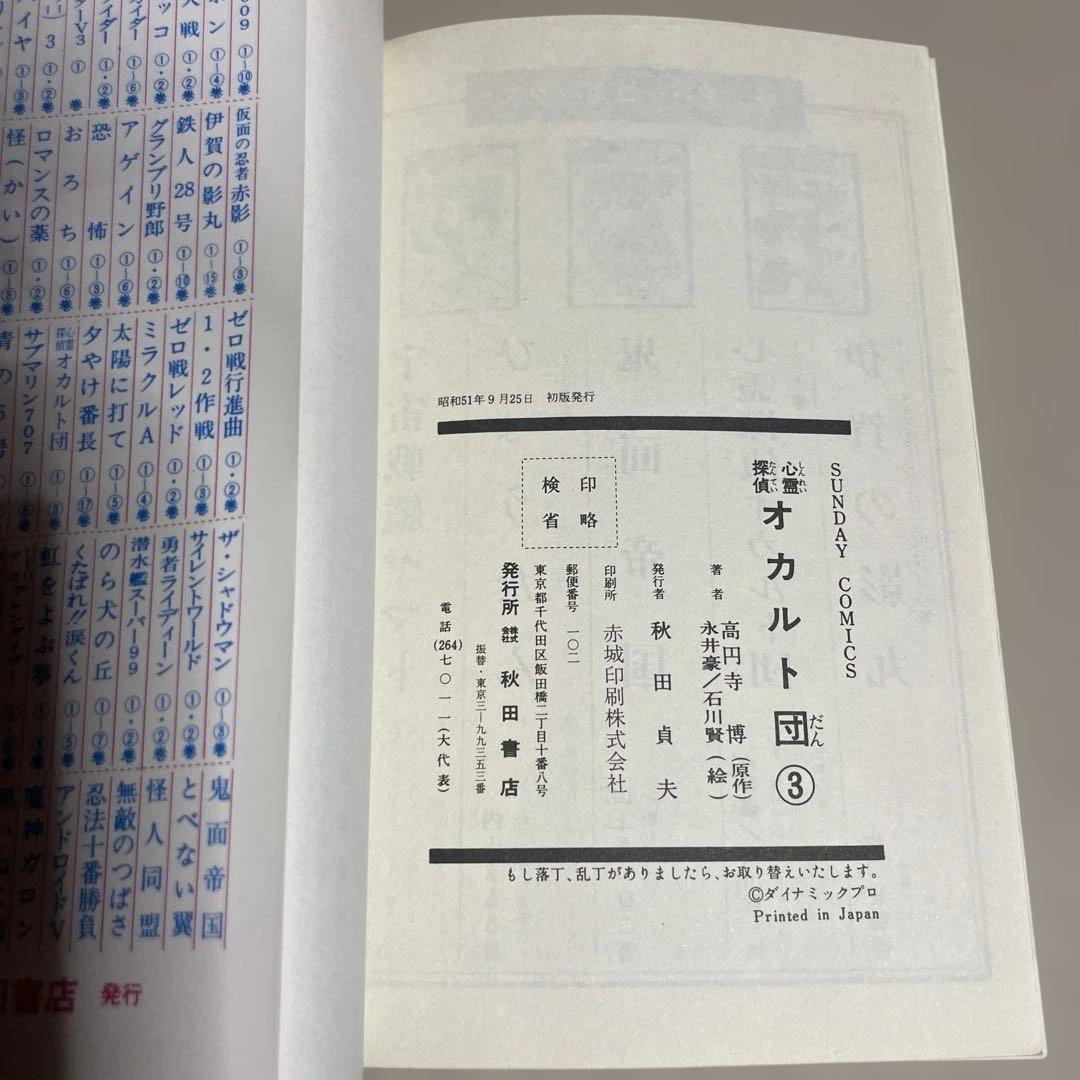 昭和51年9月25日　初版発行
SUNDAY COMICS
心霊探偵 オカルト団 ③
しんれい
たんてい
だん
著者 高円寺 博（原作）
永井豪／石川賢（絵）
発行者 秋田貞夫
印刷所 赤城印刷株式会社
郵便番号 一〇二
東京都千代田区飯田橋二丁目十番八号
発行所 株式会社 秋田書店
振替・東京三―九九三五三番
電話(264)七〇一一(大代表)
印略
検省
もし落丁、乱丁がありましたら、お取り替えいたします。
©ダイナミックプロ
Printed in Japan
仮面の忍者赤影 ①～③巻
伊賀の影丸 ①～⑮巻
鉄人28号 ①～⑩巻
グランプリ野郎 ①・②巻
アゲイン ①～⑥巻
恐怖 ①～③巻
おろち ①～⑥巻
ロマンスの薬 ①・②巻
怪(かい) ①～③巻
ゼロ戦行進曲 ①・②巻
1・2作戦 ①～③巻
ゼロ戦レッド ①・②巻
ミラクルA ①～④巻
太陽に打て ①～⑤巻
夕やけ番長 ①～⑰巻
心霊探偵オカルト団 ①～③巻
サブマリン707 ①～⑥巻
ザ・シャドウマン ①～③巻
サイレントワールド ①・②巻
勇者ライディーン ①・②巻
潜水艦スーパー99 ①・②巻
のら犬の丘 ①～⑦巻
くたばれ!!涙くん ①～⑤巻
虹をよぶ拳
鬼面帝国
とべない翼
怪人同盟
無敵のつばさ
忍法十番勝負
アンドロイドV
魔神ガロン
書店 発行